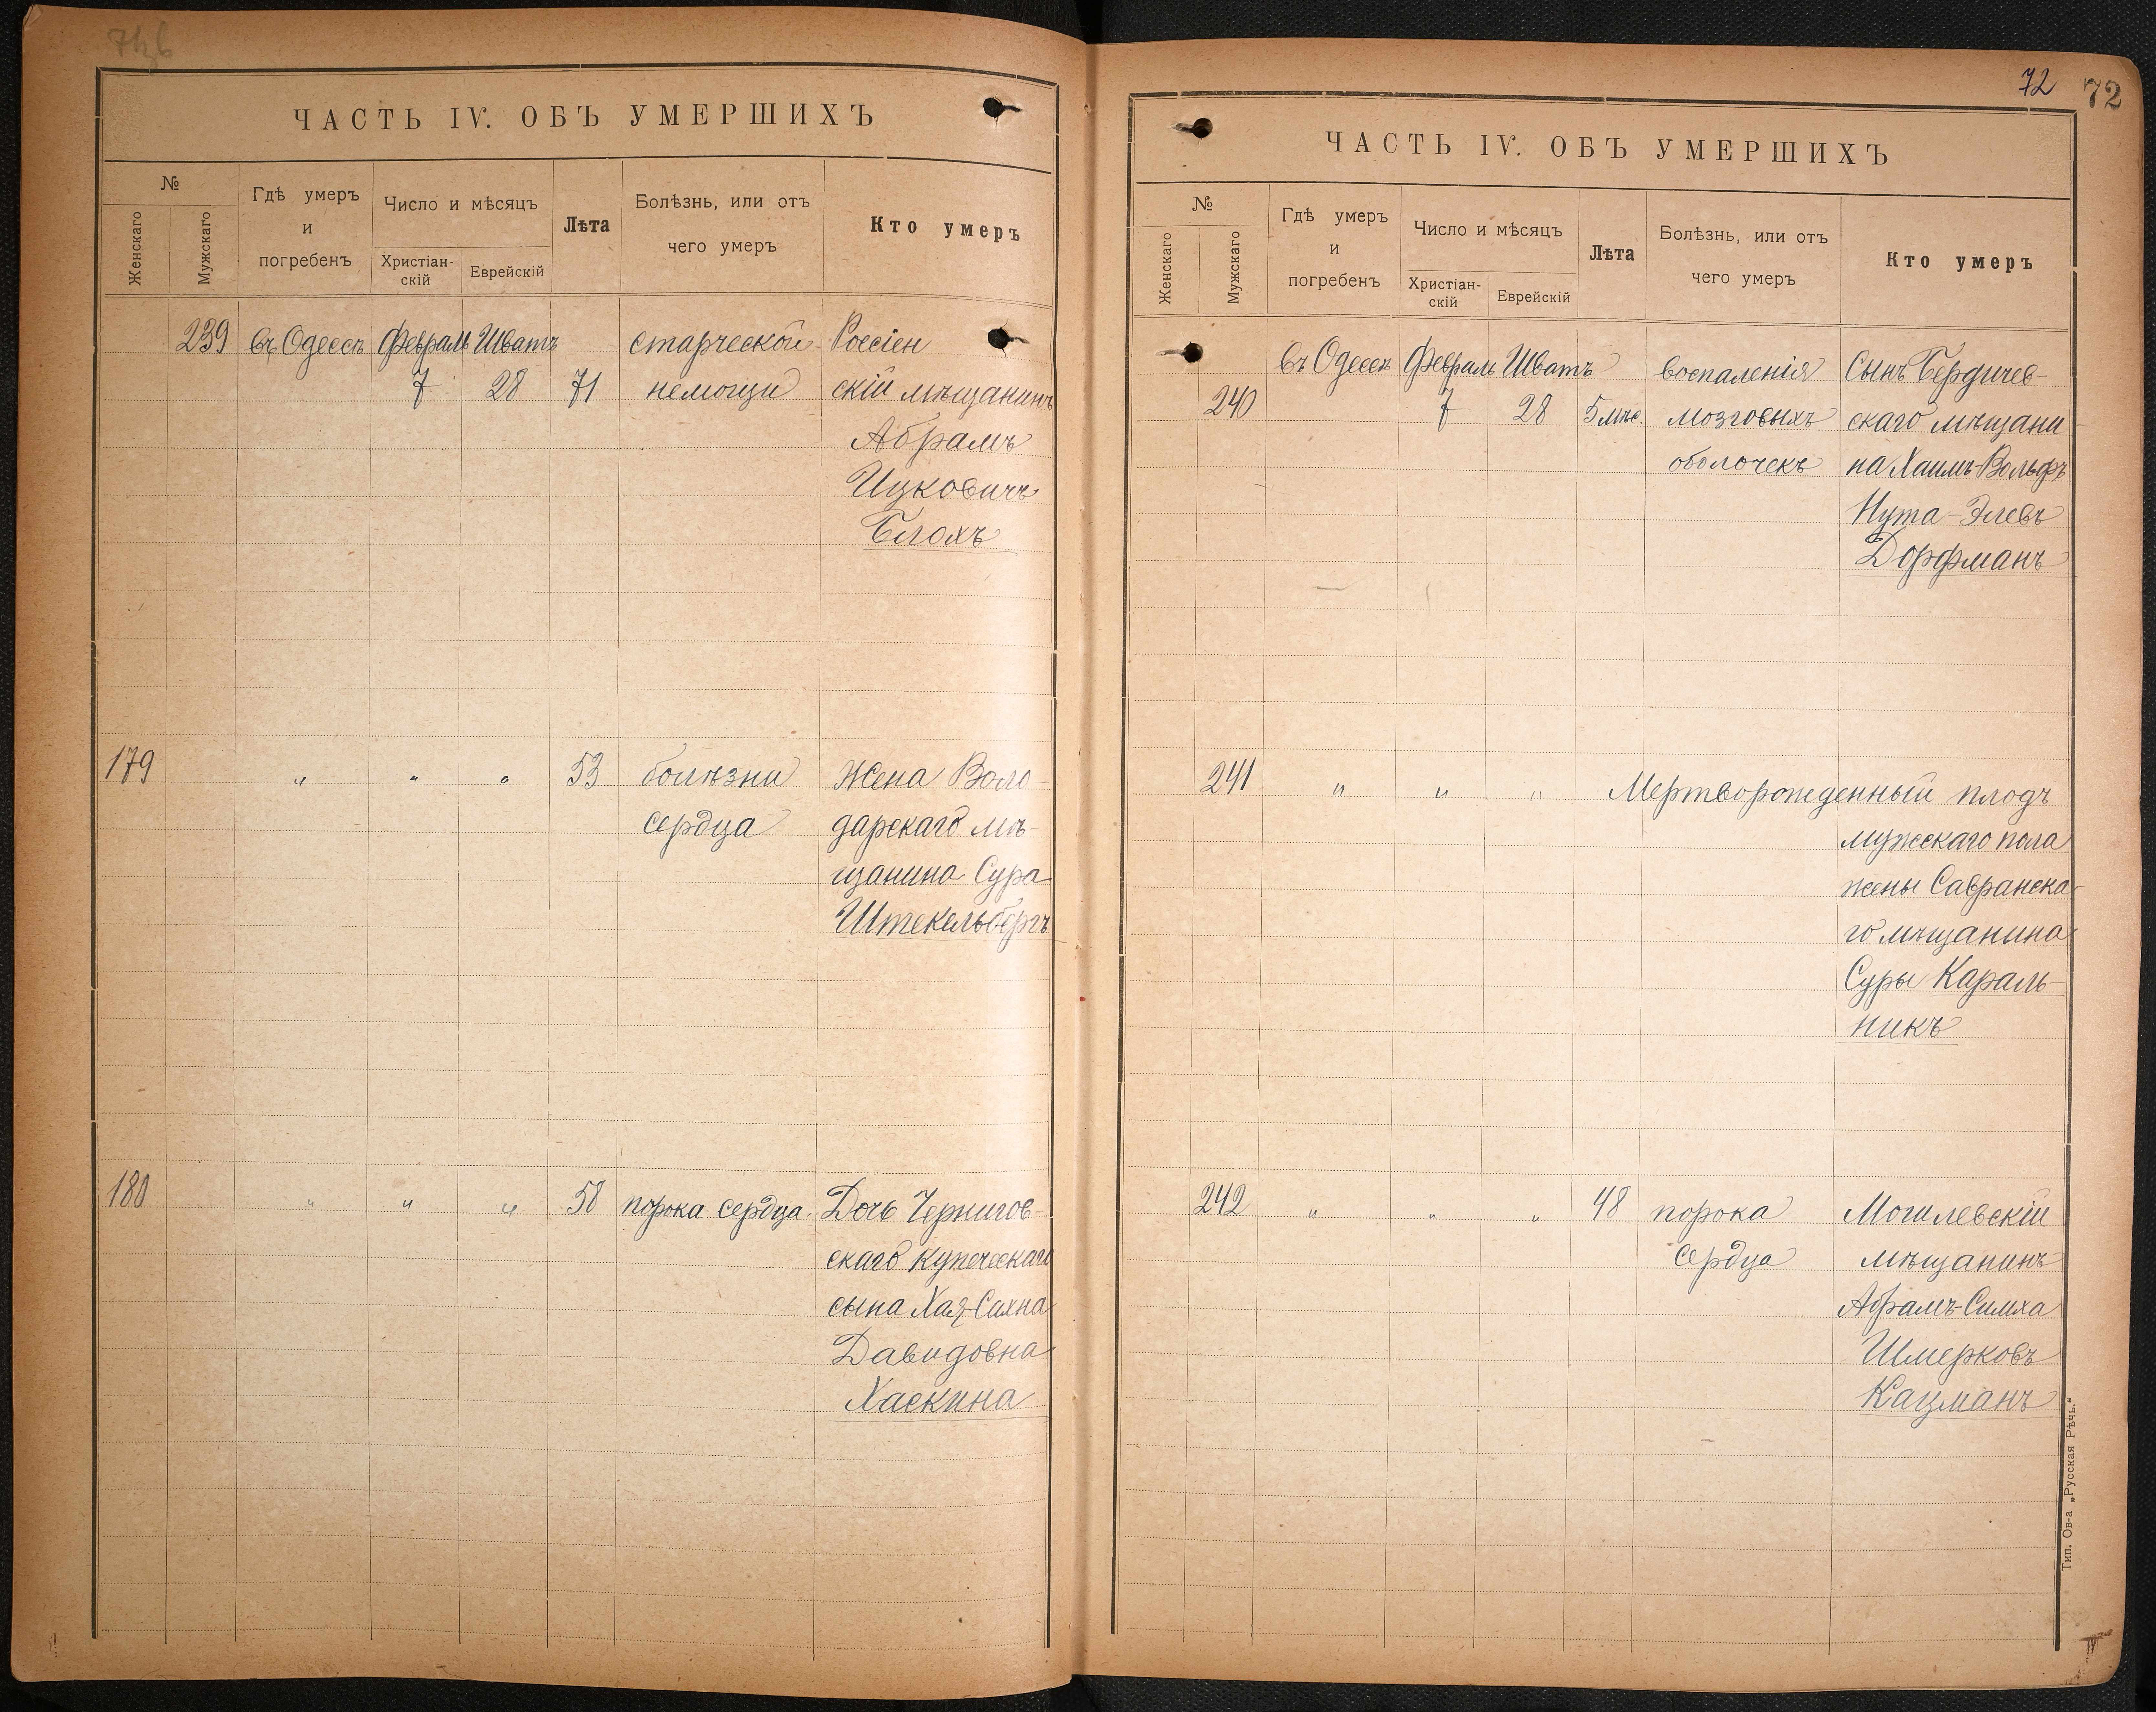 ЧАСТЬ IV. ОБЪ УМЕРШИХЪ
№
Женскаго
Мужскаго
Гдѣ умеръ
и
погребенъ
Число и мѣсяцъ
Христіан-
скій
Еврейскій
Лѣта
Болѣзнь, или отъ
чего умеръ
Кто умеръ
239 въ Одессѣ Февраль Шватъ старческой Россіен
7 28 71 немощи скій мѣщанинъ
Абрамъ
Ицковичъ
Блохъ
179 " " " 53 болѣзни Жена Воло-
сердца дарскаго мѣ-
щанина Сура
Штекельбергъ
180 " " " 58 порока сердца. Дочь Чернигов-
скаго купеческаго
сына Хая-Сахна
Давидовна
Хаскина
72 72
ЧАСТЬ IV. ОБЪ УМЕРШИХЪ
№
Женскаго
Мужскаго
Гдѣ умеръ
и
погребенъ
Число и мѣсяцъ
Христіан-
скій
Еврейскій
Лѣта
Болѣзнь, или отъ
чего умеръ
Кто умеръ
въ Одессѣ Февраль Шватъ воспаленія Сынъ Бердичев-
240 7 28 5 мѣс. мозговыхъ скаго мѣщани
оболочекъ на Хаимъ-Вольфъ
Нута-Элевъ
Дорфманъ
241 " " " Мертворожденный плодъ
мужескаго пола
жены Савранска-
го мѣщанина
Суры Караль-
никъ
242 " " " 48 порока Могилевскій
сердца мѣщанинъ
Абрамъ-Симха
Шмерковъ
Кацманъ
Тип. Ов-а „Русская Рѣчь."